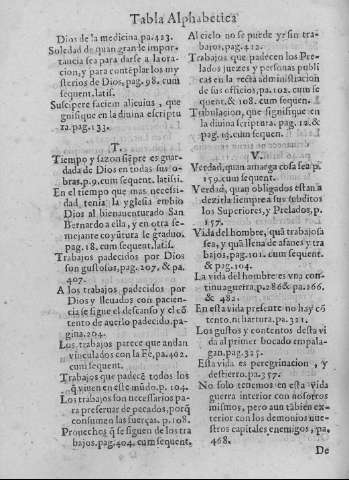 Tabla Alphabetica
Dios de la medicina. pa. 423.
Soledad de quan gran̄ de impor-
tancia sea para darse a la ora-
cion, y para contẽplar los my-
sterios de Dios, pag. 98. cum
sequent. latis.
Suscipere faciem alicuius, que
signifique en la diuina escriptu
ra. pag. 133.
T.
Tiempo y sazon siẽpre es guar-
dada de Dios en todas sus o-
bras. p. 9. cum sequent. latisi.
En el tiempo que mas necessi-
dad, tenia la yglesia embio
Dios al bienauenturado San
Bernardo a ella, y en otra se-
mejante coyũtura le graduo,
pag. 18. cum sequent. latis.
Trabajos padecidos por Dios
son gustosos, pag. 207. & pa.
407.
A los trabajos padecidos por
Dios y lleuados con pacien-
cia se sigue el descanso y el cõ
tento de auerlo padecido. pa-
gina. 204.
Los trabajos parece que andan
vinculados con la Fè, pa. 402.
cum sequent.
Trabajos que padecẽ todos los
q̃ viuen en este mũdo. p. 104.
Los trabajos son necessarios pa-
ra preseruar de pecados, porq̃
consumen las fuerças. p. 108.
Prouechos q̃ se siguen de los tra
bajos. pag. 404. cum sequent.
Al cielo no se puede yr sin tra-
bajos, pag. 412.
Trabajos que padecen los Pre-
lados juezes y personas publi
cas en la recta administracion
de sus officios, pa. 102. cum se
quent. & 108. cum sequen.
Tribulacion, que signifique en
la diuina scriptura. pag. 12. &
pag. 19. cum sequen.
V.
Verdad, quan amarga cosa sea. p.
159. cum sequent.
Verdad, quan obligados estan a
dezirla siempre a sus subditos
los Superiores, y Prelados, p.
157.
Vida del hombre, quã trabajosa
sea, y quã llena de afanes y tra
bajos, pag. 101. cum sequent.
& pag. 104.
La vida del hombre es vna con-
tinua guerra, p. 286 & pa. 266.
& 482.
En esta vida presente no hay cõ
tento, ni hartura. pa. 321.
Los gustos y contentos desta vi
da al primer bocado empala-
gan. pag. 325.
Esta vida es peregrinacion, y
destierro. pa. 357.
No solo tenemos en esta vida
guerra interior con nosotros
mismos, pero aun tãbien ex-
terior con los demonios nue-
stros capitales enemigos, pa.
468.
De